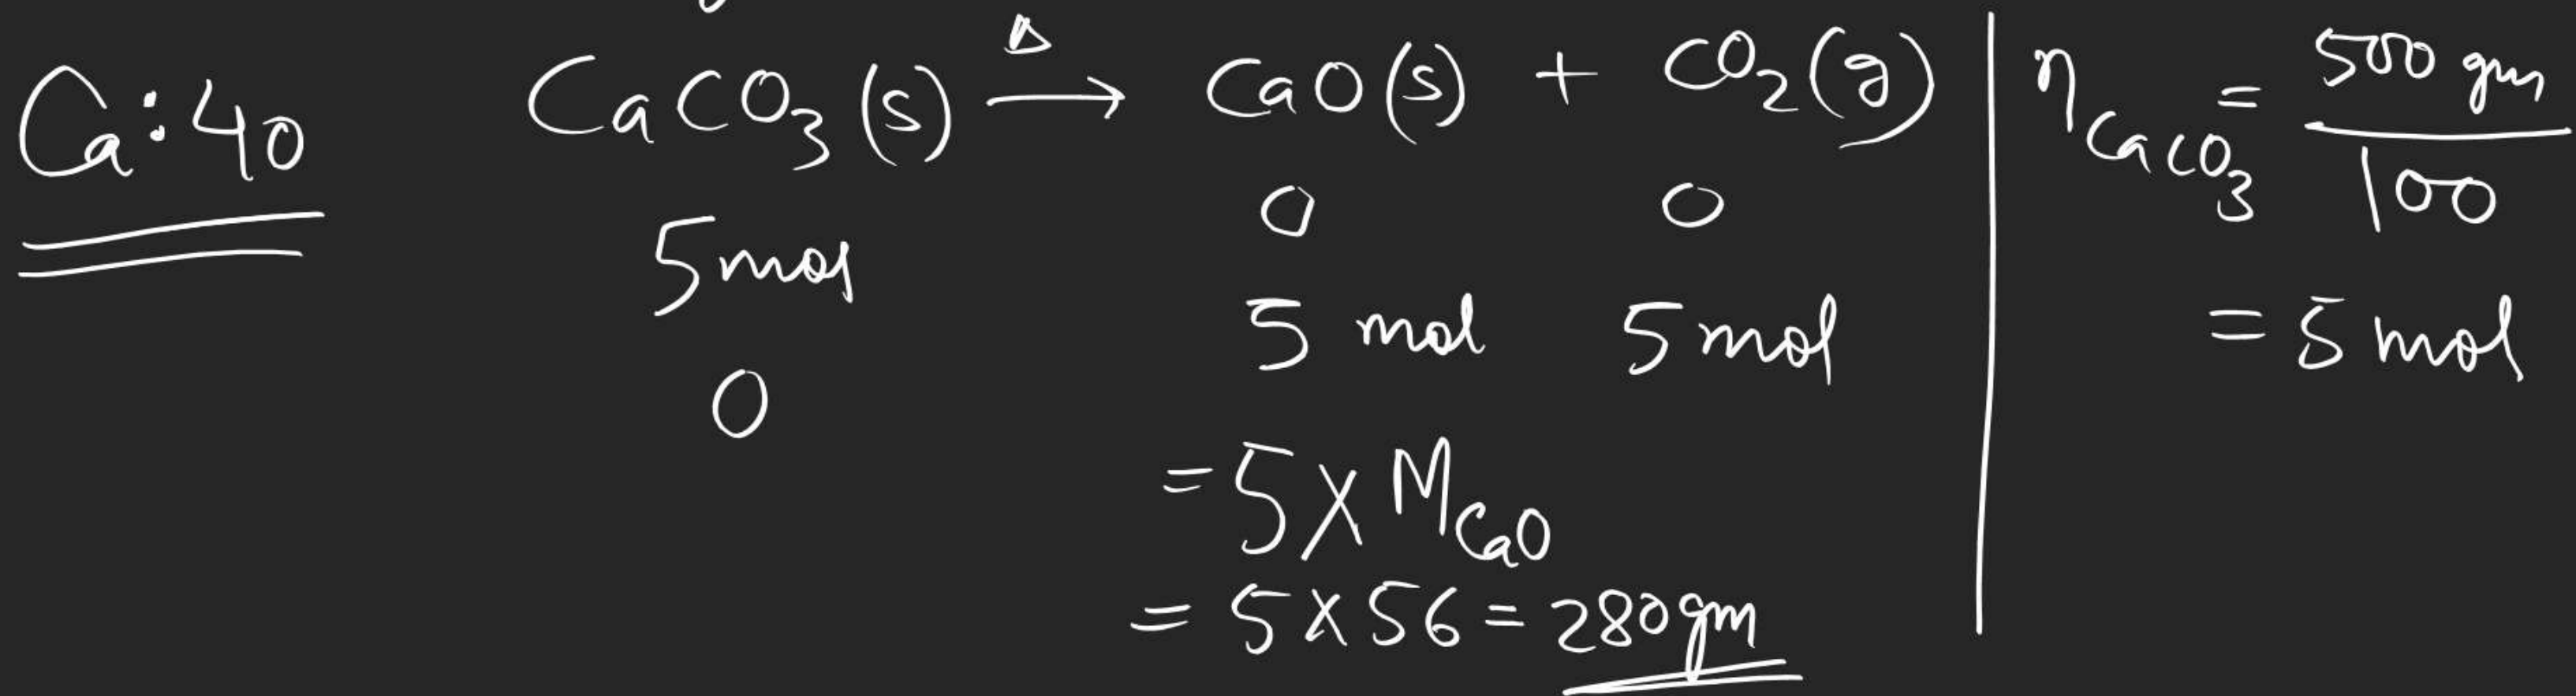 Ca : 40
CaCO₃(s) —Δ→ CaO(s) + CO₂(g)
5mol 0 0
0 5 mol 5 mol
= 5 × M_CaO
= 5 × 56 = 280 gm
n_CaCO₃ = 500 gm / 100
= 5 mol